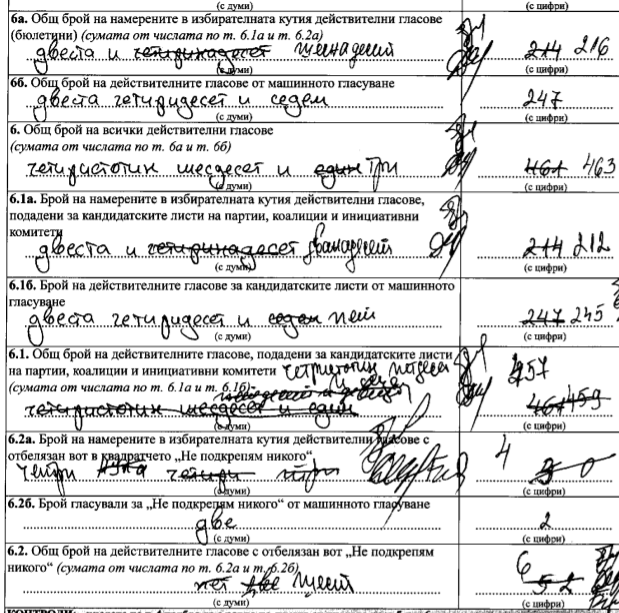 (с думи) (с цифри)
6а. Общ брой на намерените в избирателната кутия действителни гласове
(бюлетини) (сумата от числата по т. 6.1а и т. 6.2а)
двеста и четиринадесет шеснадесет 214 216
(с думи) (с цифри)
6б. Общ брой на действителните гласове от машинното гласуване
двеста четиридесет и седем 247
(с думи) (с цифри)
6. Общ брой на всички действителни гласове
(сумата от числата по т. 6а и т. 6б)
четиристотин шесдесет и един три 461 463
(с думи) (с цифри)
6.1а. Брой на намерените в избирателната кутия действителни гласове,
подадени за кандидатските листи на партии, коалиции и инициативни
комитети
двеста и четиринадесет дванадесет 214 212
(с думи) (с цифри)
6.1б. Брой на действителните гласове за кандидатските листи от машинното
гласуване
двеста четиридесет и седем пет 247 245
(с думи) (с цифри)
6.1. Общ брой на действителните гласове, подадени за кандидатските листи
на партии, коалиции и инициативни комитети 457
(сумата от числата по т. 6.1а и т. 6.1б)
четиристотин шесдесет и един 461 459
(с думи) (с цифри)
6.2а. Брой на намерените в избирателната кутия действителни гласове с
отбелязан вот в квадратчето „Не подкрепям никого“ 4
четири три 0
(с думи) (с цифри)
6.2б. Брой гласували за „Не подкрепям никого“ от машинното гласуване
две 2
(с думи) (с цифри)
6.2. Общ брой на действителните гласове с отбелязан вот „Не подкрепям
никого“ (сумата от числата по т. 6.2а и т. 6.2б) 6
пет две шест 5 2
(с думи) (с цифри)